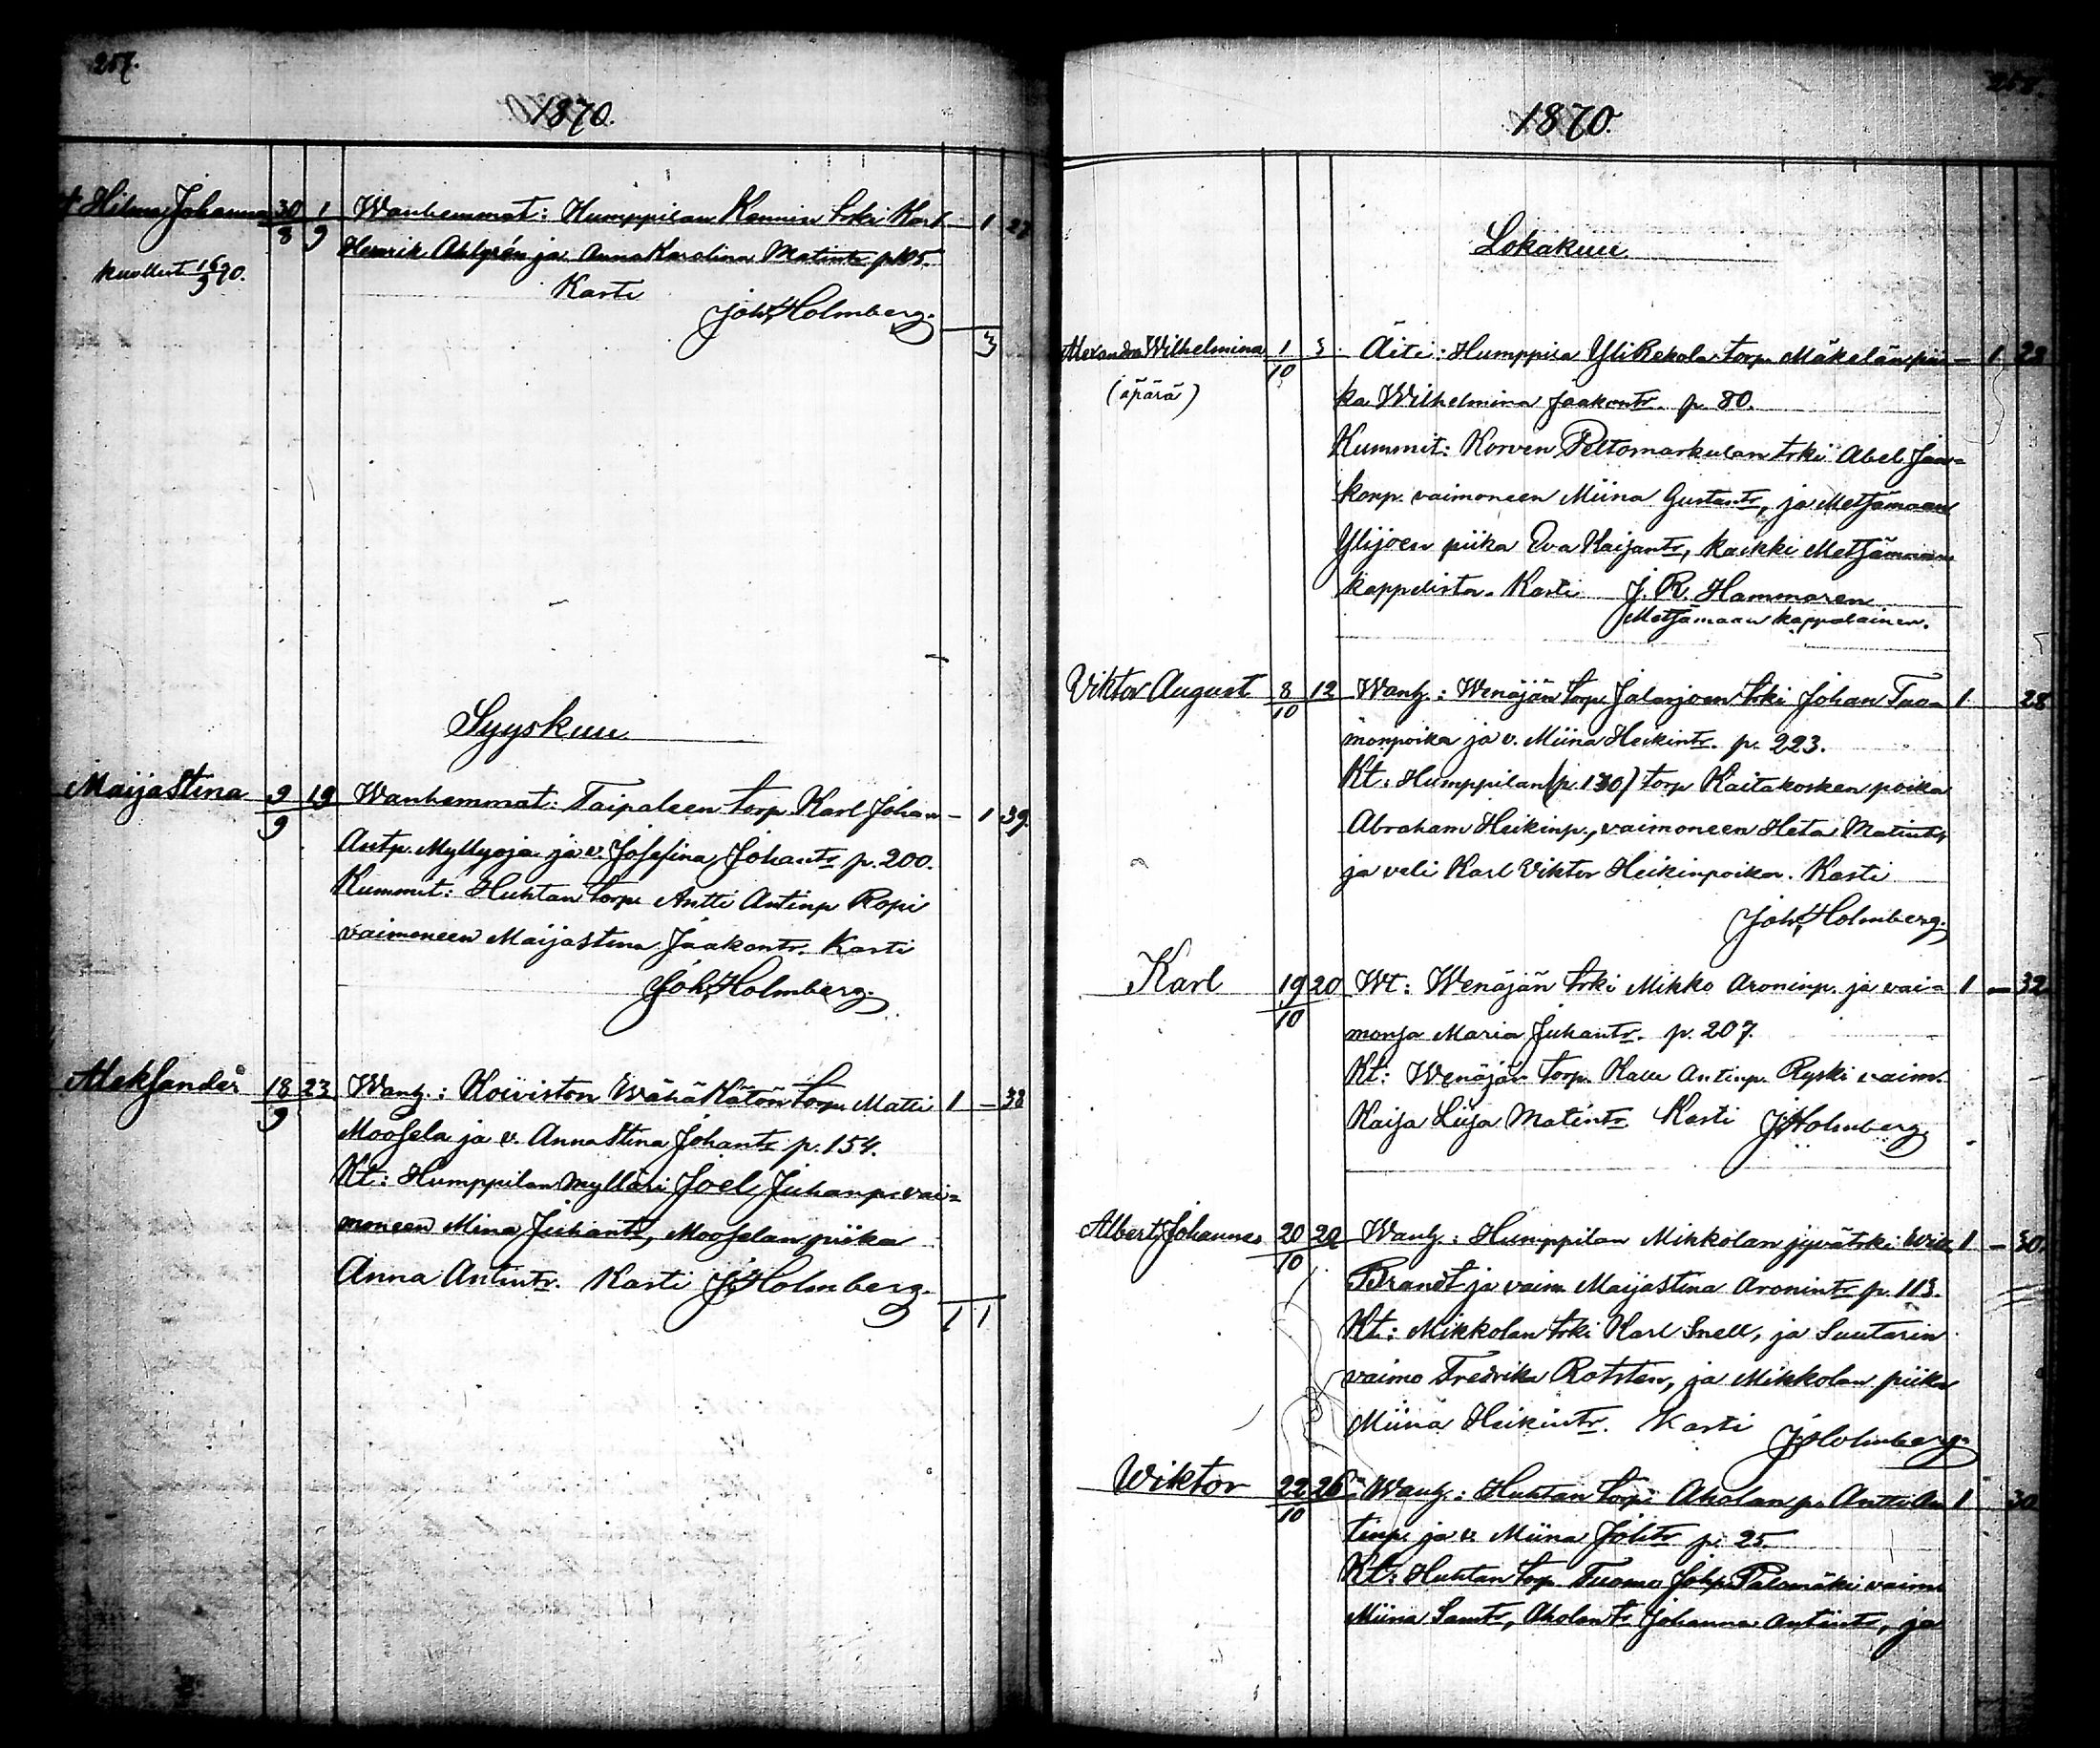 257.
1870.
† Hilma Johanna 30/8 1/9 Wanhemmat: Humppilan Kannin trki Karl — 1 27
Henrik Ahlgrén ja Anna Karolina Matintr p. 105.
kuollut 16/3 90.
Kasti
Joh. Holmberg.
3
Syyskuu
Maijastina 9/9 19 Wanhemmat: Taipaleen torp. Karl Johan — 1 39.
Antp. Myllyoja ja v. Josefina Johantr p. 200.
Kummit: Huhtan torp. Antti Antinp Ropi
vaimoneen Maijastina Jaakontr. Kasti
Joh. Holmberg.
Aleksander 18/9 23 Wanh.: Koiviston WähäKätön torp. Matti 1 — 38
Moosela ja v. Annastina Johantr p. 154.
Kt: Humppilan mylläri Joel Juhanp. vai=
moneen Mina Juhantr, Mooselan piika
Anna Antintr. Kasti J. Holmberg.
1 1
258.
1870.
Lokakuu
Alexandra Wilhelmina 1/10 3 Äiti: Humppila YliRekola torp. Mäkelän pii — 1 28
(äpärä)
ka Wilhelmina Jaakontr. p. 80.
Kummit: Korven Peltomarkulan trki Abel Jaa=
konp. vaimoneen Miina Gustantr, ja Metsämaan
Ylijoen piika Eva Kaisantr, kaikki Metsämaan
kappelista. Kasti J. R. Hammaren
Metsämaan kappalainen.
Viktor August 8/10 12 Wanh.: Wenäjän torp. Jalasjoen trki Johan Tuo= 1 28
monpoika ja v. Miina Heikintr. p. 223.
Kt: Humppilan (p. 130) torp Kaitakosken poika
Abraham Heikinp., vaimoneen Heta Matintr,
ja veli Karl Viktor Heikinpoika. Kasti
Joh. Holmberg.
Karl 19/10 20 Wt: Wenäjän trki Mikko Aroninp. ja vai= 1 — 32
monsa Maria Juhantr. p. 207.
Kt: Wenäjän torp. Kalle Antinp. Ryski vaim.
Kaisa Liisa Matintr Kasti J. Holmberg.
Albert Johannes 20/10 22 Wanh.: Humppilan Mikkolan jyvätrki Wilh 1 — 30.
Brandt ja vaim Maijastina Aronintr p. 113.
Kt: Mikkolan trki Karl Snell, ja Suutarin
vaimo Fredrika Rotsten, ja Mikkolan piika
Miina Heikintr. Kasti J. Holmberg.
Wiktor 22/10 26 Wanh.: Huhtan torp Aholan p. Antti An 1 30
tinp. ja v. Miina Johtr p. 25.
Kt: Huhtan torp Tuomo Johp. Palomäki vaim
Miina Samtr, Aholan tr Johanna Antintr, ja